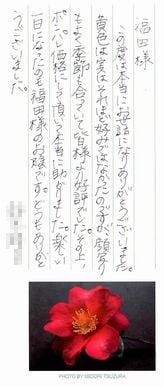 福田様
この度は本当にお世話になりありがとうございました。
黄色は実はそれほど好みではなかったのですが、顔写り
もよく季節も合っていて皆様より好評でした。その上、
ポッパレ価格にして頂いて本当に助かりました。楽しい
一日になったのも福田様のお陰です。どうもありがと
うございました。
PHOTO BY MIDORI TSUZURA